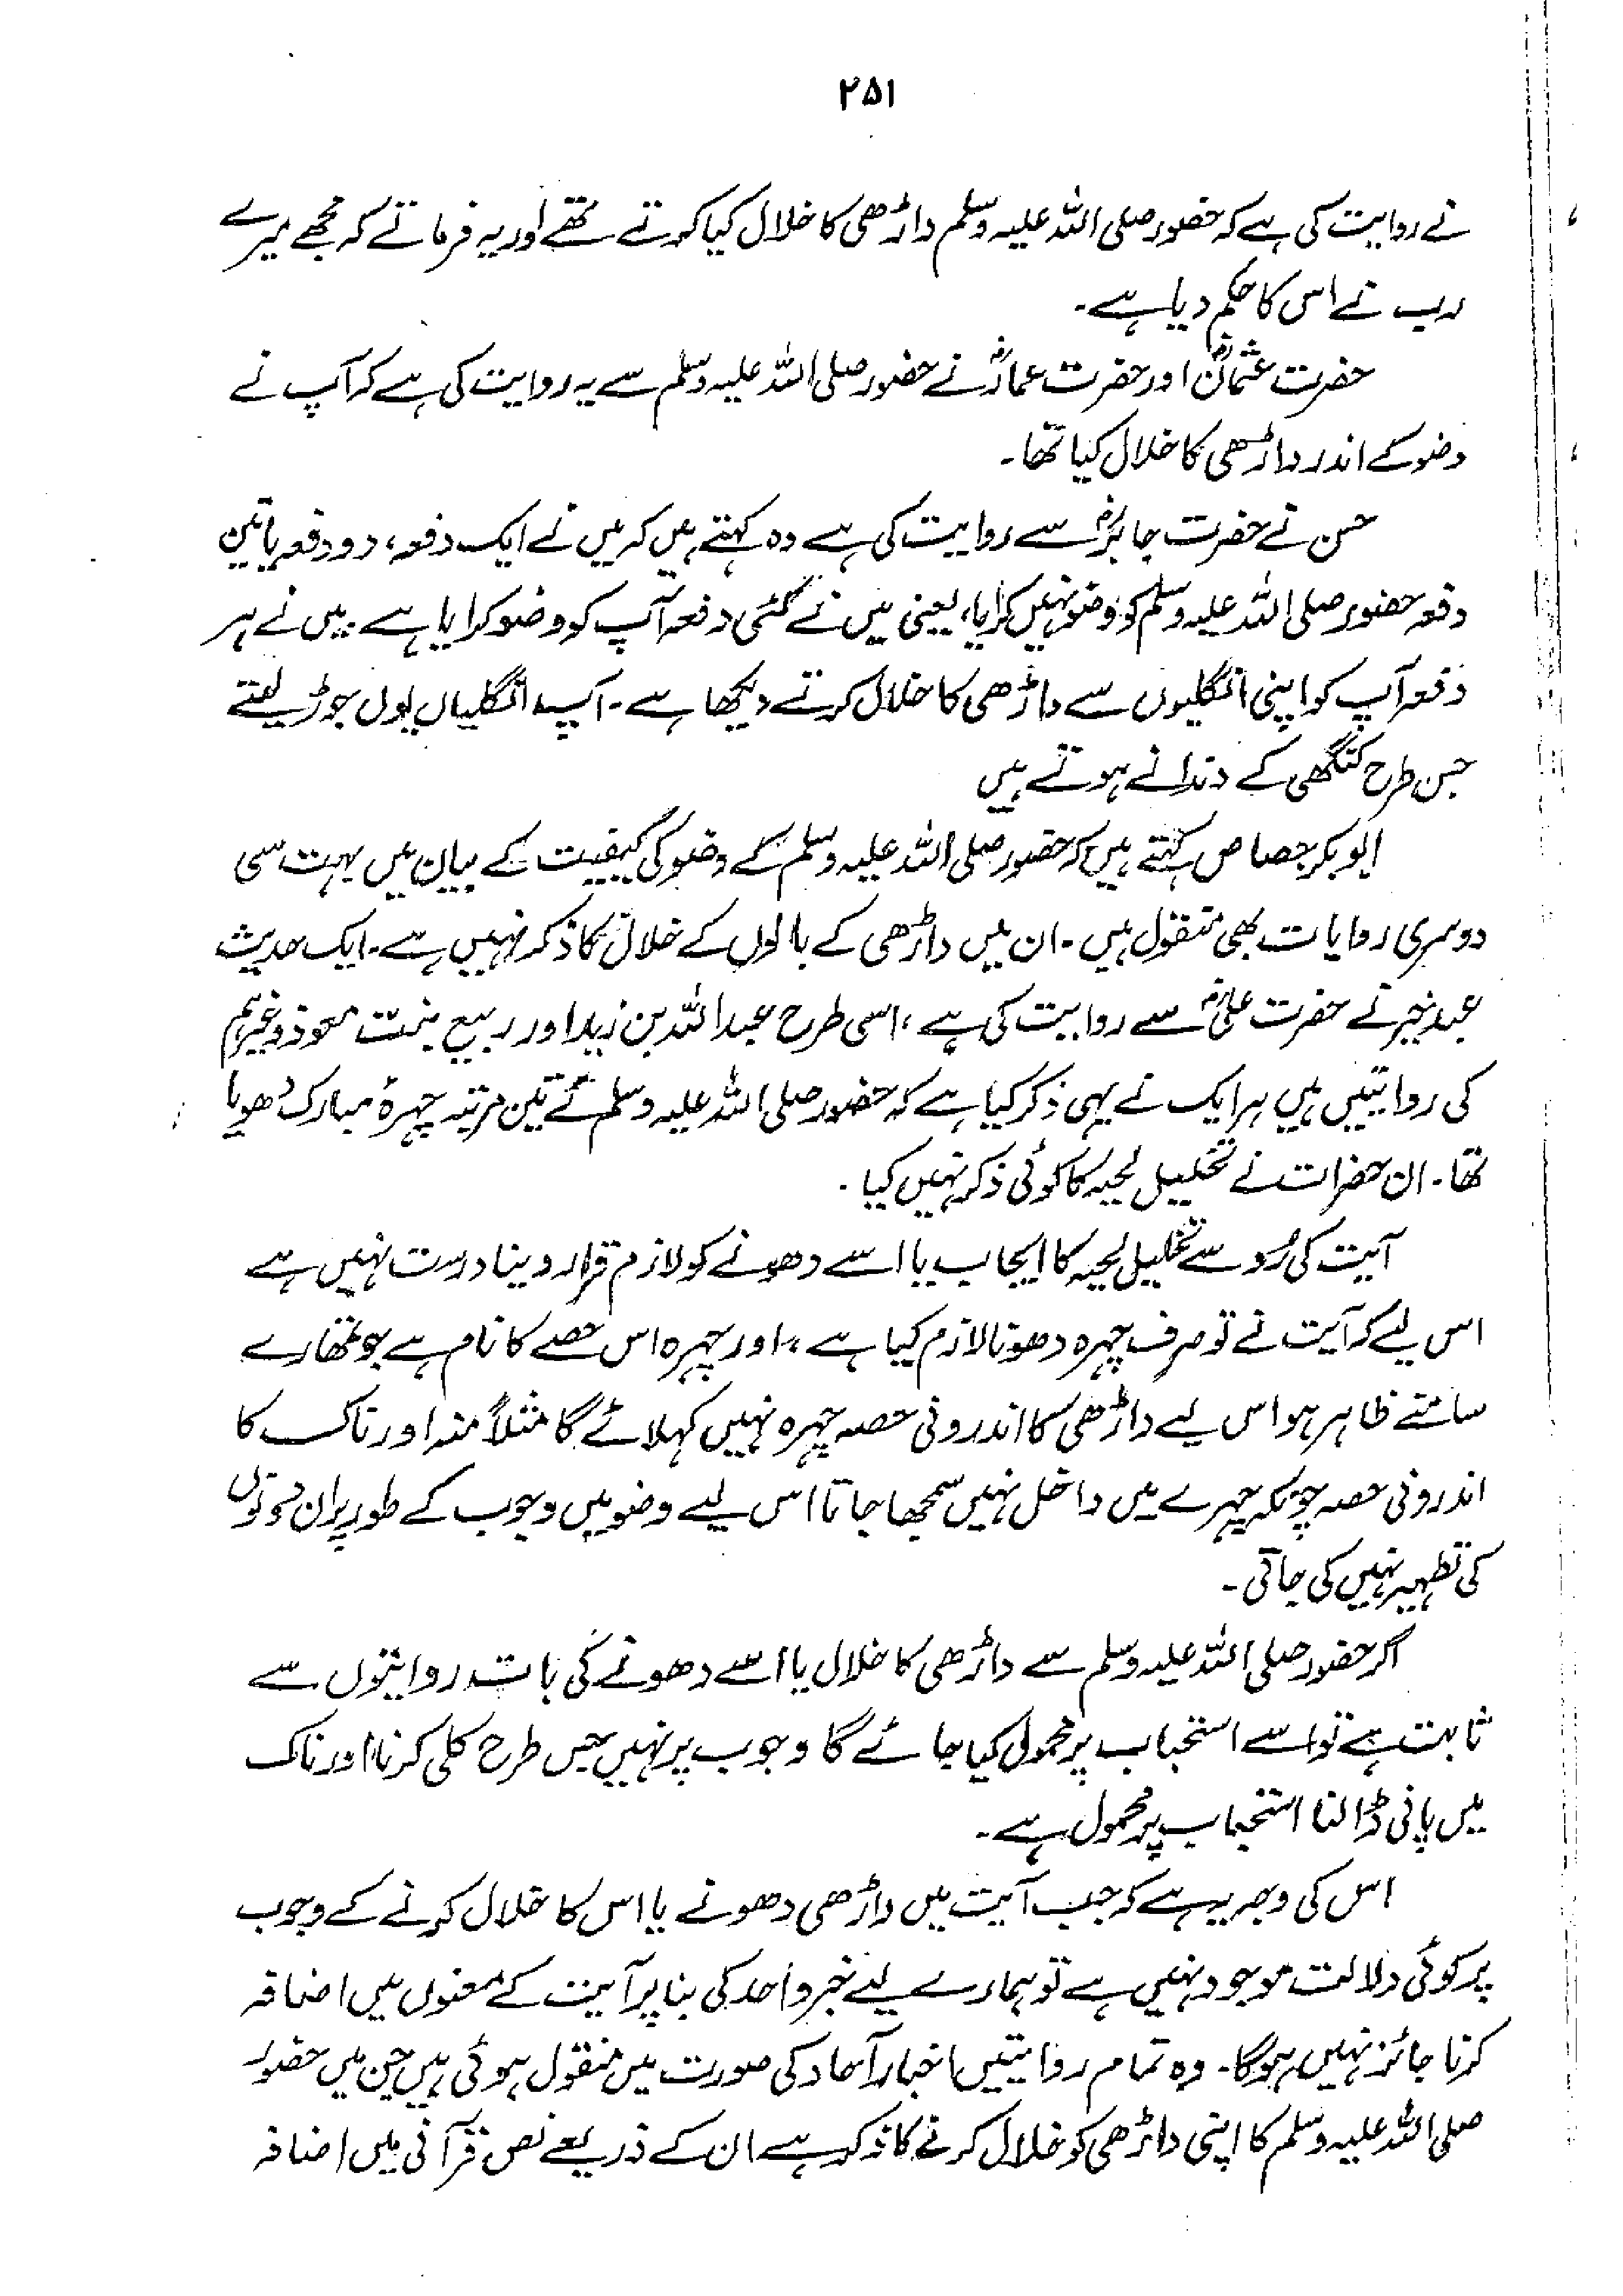 ۲۵۱
نے روایت کی ہے کہ حضور صلی اللہ علیہ وسلم داڑھی کا خلال کیا کرتے تھے اور یہ فرماتے کہ مجھے میرے
رب نے اس کا حکم دیا ہے۔
حضرت عثمانؓ اور حضرت عمارؓ نے حضور صلی اللہ علیہ وسلم سے یہ روایت کی ہے کہ آپ نے
وضو کے اندر داڑھی کا خلال کیا تھا۔
حسن نے حضرت جابرؓ سے روایت کی ہے وہ کہتے ہیں کہ میں نے ایک دفعہ، دو دفعہ یا تین
دفعہ حضور صلی اللہ علیہ وسلم کو وضو نہیں کرایا، یعنی میں نے کئی دفعہ آپ کو وضو کرایا ہے۔ میں نے ہر
دفعہ آپ کو اپنی انگلیوں سے داڑھی کا خلال کرتے دیکھا ہے۔ آپ انگلیاں یوں جوڑ لیتے
جس طرح کنگھی کے دندانے ہوتے ہیں
ابوبکر جصاص کہتے ہیں کہ حضور صلی اللہ علیہ وسلم کے وضو کی کیفیت کے بیان میں بہت سی
دوسری روایات بھی منقول ہیں۔ ان میں داڑھی کے بالوں کے خلال کا ذکر نہیں ہے۔ ایک حدیث
عبد خیر نے حضرت علیؓ سے روایت کی ہے، اسی طرح عبداللہ بن زید اور ربیع بنت معوذ وغیرہم
کی روایتیں ہیں ہر ایک نے یہی ذکر کیا ہے کہ حضور صلی اللہ علیہ وسلم نے تین مرتبہ چہرۂ مبارک دھویا
تھا۔ ان حضرات نے تخلیل لحیہ کا کوئی ذکر نہیں کیا۔
آیت کی رُو سے تخلیل لحیہ کا ایجاب یا اسے دھونے کو لازم قرار دینا درست نہیں ہے
اس لیے کہ آیت نے تو صرف چہرہ دھونا لازم کیا ہے، اور چہرہ اس حصے کا نام ہے جو تمھارے
سامنے ظاہر ہو اس لیے داڑھی کا اندرونی حصہ چہرہ نہیں کہلائے گا مثلاً منہ اور ناک کا
اندرونی حصہ چونکہ چہرے میں داخل نہیں سمجھا جاتا اس لیے وضو میں وجوب کے طور پر ان دونوں
کی تطہیر نہیں کی جاتی۔
اگر حضور صلی اللہ علیہ وسلم سے داڑھی کا خلال یا اسے دھونے کی بات روایتوں سے
ثابت ہے تو اسے استحباب پر محمول کیا جائے گا وجوب پر نہیں جس طرح کلی کرنا اور ناک
میں پانی ڈالنا استحباب پر محمول ہے۔
اس کی وجہ یہ ہے کہ جب آیت میں داڑھی دھونے یا اس کا خلال کرنے کے وجوب
پر کوئی دلالت موجود نہیں ہے تو ہمارے لیے خبر واحد کی بنا پر آیت کے معنوں میں اضافہ
کرنا جائز نہیں ہوگا۔ وہ تمام روایتیں اخبار آحاد کی صورت میں منقول ہوئی ہیں جن میں حضور
صلی اللہ علیہ وسلم کا اپنی داڑھی کو خلال کرنے کا ذکر ہے ان کے ذریعے نص قرآنی میں اضافہ